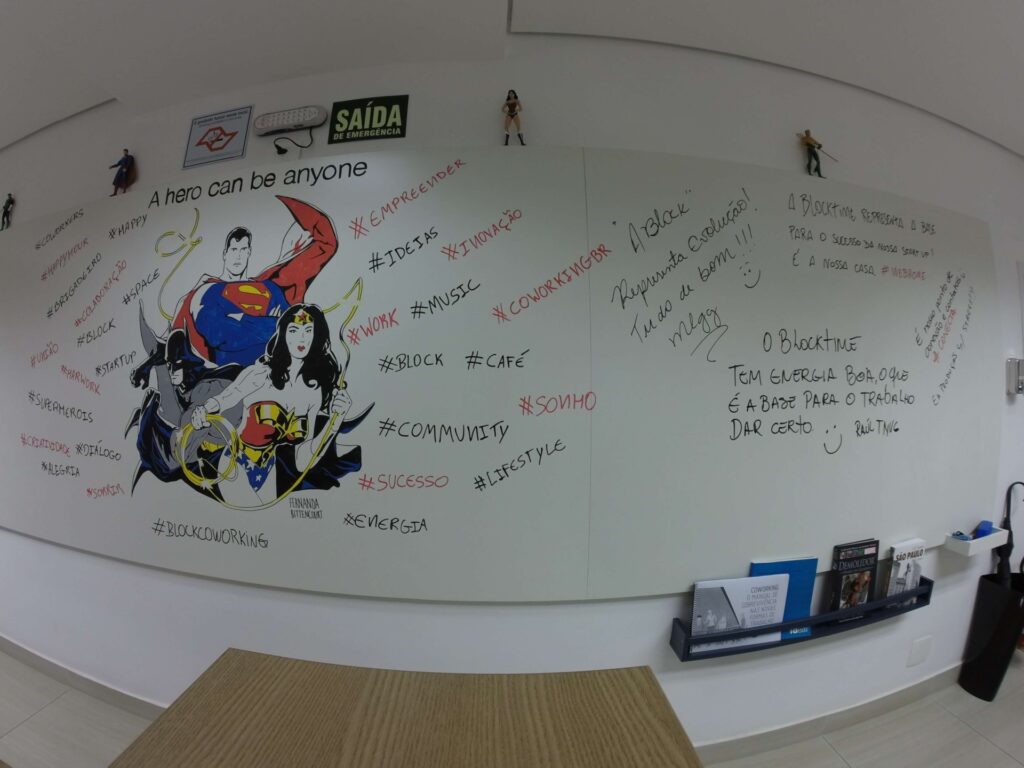 SAÍDA
DE EMERGÊNCIA
A hero can be anyone
#COWORKERS
#HAPPY
#HAPPYHOUR
#BRIGADEIRO
#COLABORAÇÃO
#SPACE
#BLOCK
#UNIÃO
#STARTUP
#HARWORK
#SUPERHEROIS
#CRIATIVIDADE
#DIÁLOGO
#ALEGRIA
#SORRIA
#BLOCKCOWORKING
#EMPREENDER
#IDEIAS
#INOVAÇÃO
#MUSIC
#COWORKINGBR
#WORK
#BLOCK
#CAFÉ
#SONHO
#COMMUNITY
#LIFESTYLE
#SUCESSO
#ENERGIA
FERNANDA
BITTENCOURT
"A Block"
Representa Evolução!
Tudo de bom!!!
A BLOCKTIME REPRESENTA A BASE
PARA O SUCESSO DA NOSSA START UP!
É A NOSSA CASA
O BLOCKTIME
TEM ENERGIA BOA, O QUE
É A BASE PARA O TRABALHO
DAR CERTO.
COWORKING
O MANUAL DE
SOBREVIVÊNCIA
NAS NOVAS
FORMAS DE
TRABALHO
DEMOLIDOR
SÃO PAULO